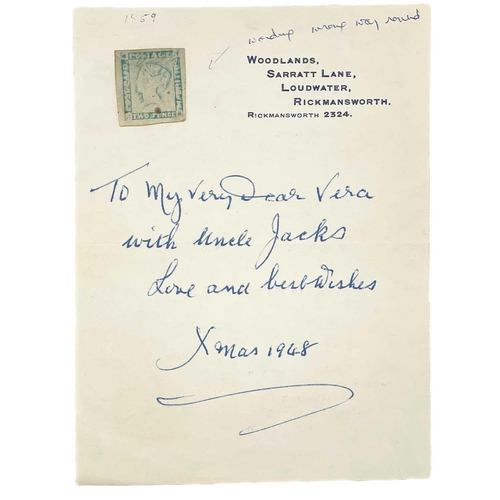 1859
wording wrong way round
POSTAGE
TWO PENCE
WOODLANDS,
SARRATT LANE,
LOUDWATER,
RICKMANSWORTH.
RICKMANSWORTH 2324.
To My Very Dear Vera
with Uncle Jacks
Love and best Wishes
Xmas 1948